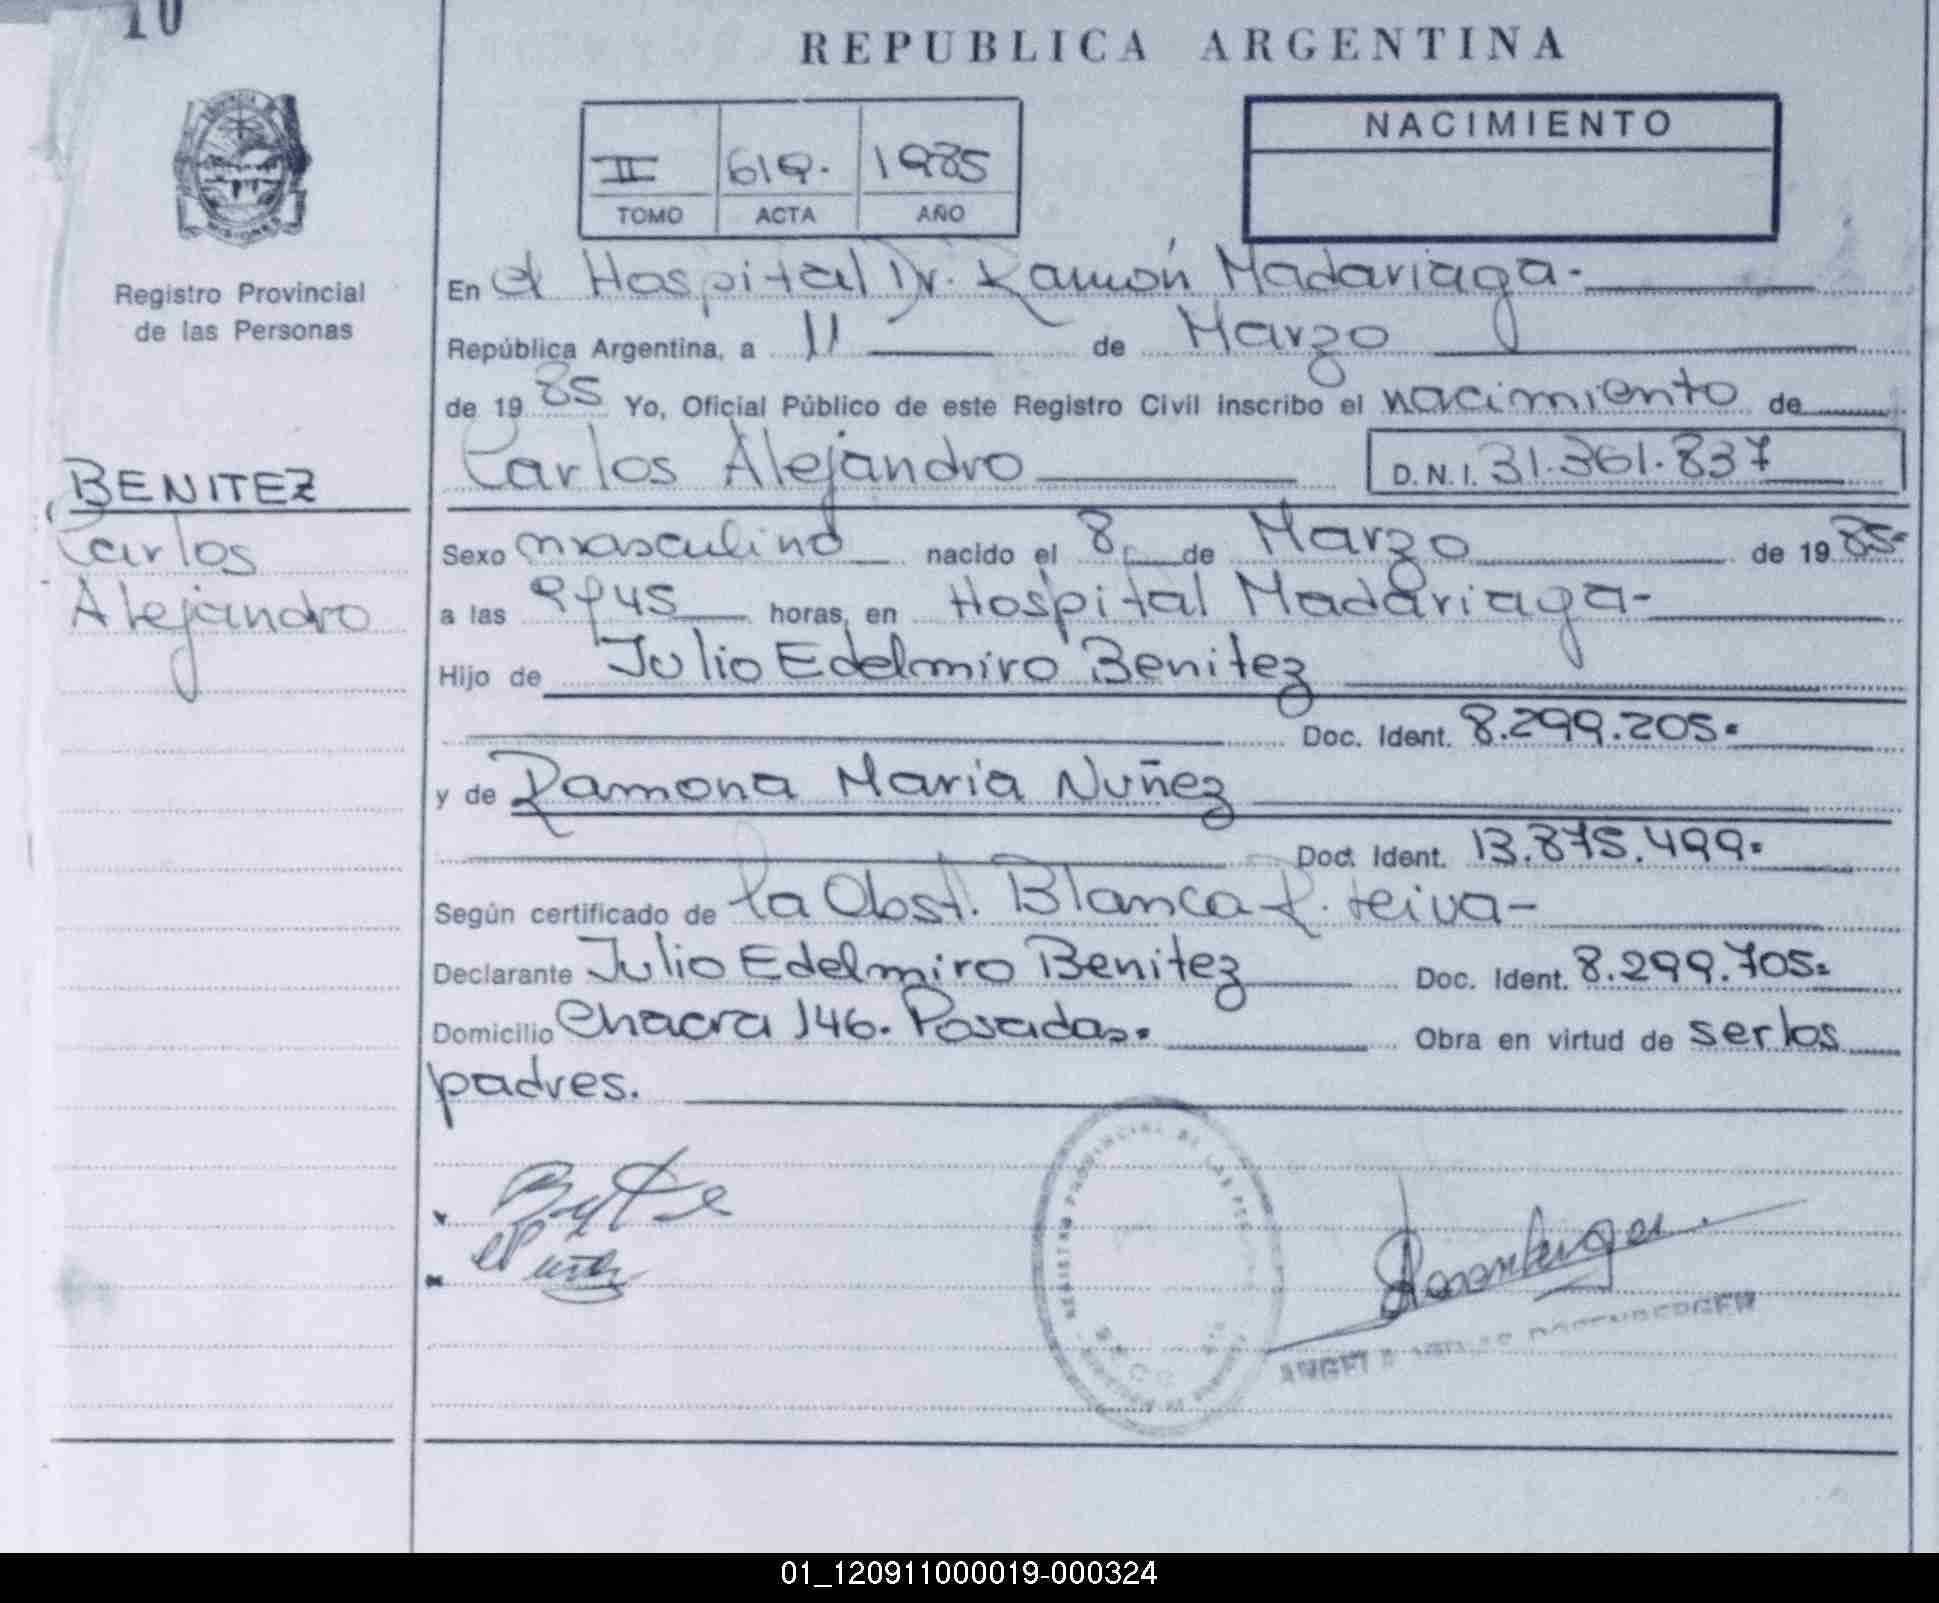 10
REPUBLICA ARGENTINA
II 619. 1985
TOMO ACTA AÑO
NACIMIENTO
Registro Provincial
de las Personas
BENITEZ
Carlos
Alejandro
En el Hospital Dr. Ramón Madariaga.
República Argentina, a 11 de Marzo
de 19 85 Yo, Oficial Público de este Registro Civil inscribo el nacimiento de
Carlos Alejandro D.N.I. 31.361.837
Sexo masculino nacido el 8 de Marzo de 19 85=
a las horas, en Hospital Madariaga-
Hijo de Julio Edelmiro Benitez
Doc. Ident. 8.299.205=
y de Ramona Maria Nuñez
Doc. Ident. 13.875.499=
Según certificado de la Obst. Blanca R. Leiva-
Declarante Julio Edelmiro Benitez Doc. Ident. 8.299.705=
Domicilio Chacra 146. Posadas. Obra en virtud de ser los
padres.
REGISTRO PROVINCIAL DE LAS PER
Rosenberger
ROSENBERGER
01_120911000019-000324